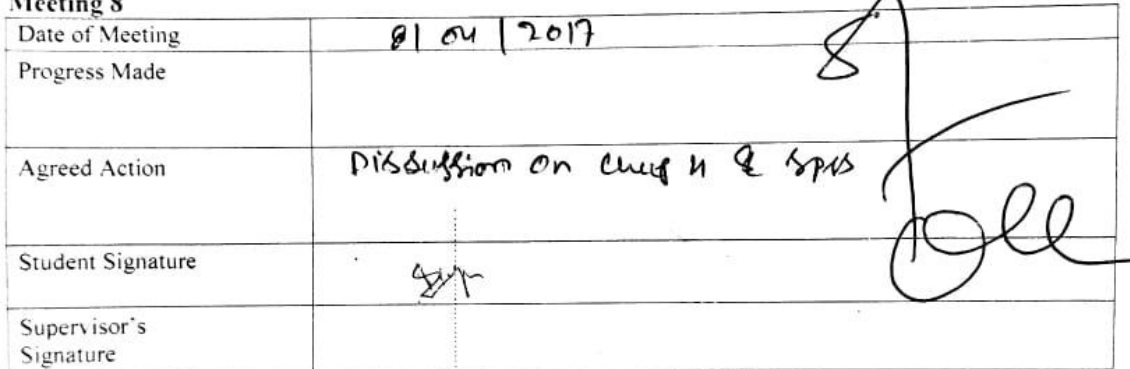 Meeting 8
Date of Meeting 8/04/2017
Progress Made
Agreed Action Discussion on & SPSS
Student Signature
Supervisor's
Signature